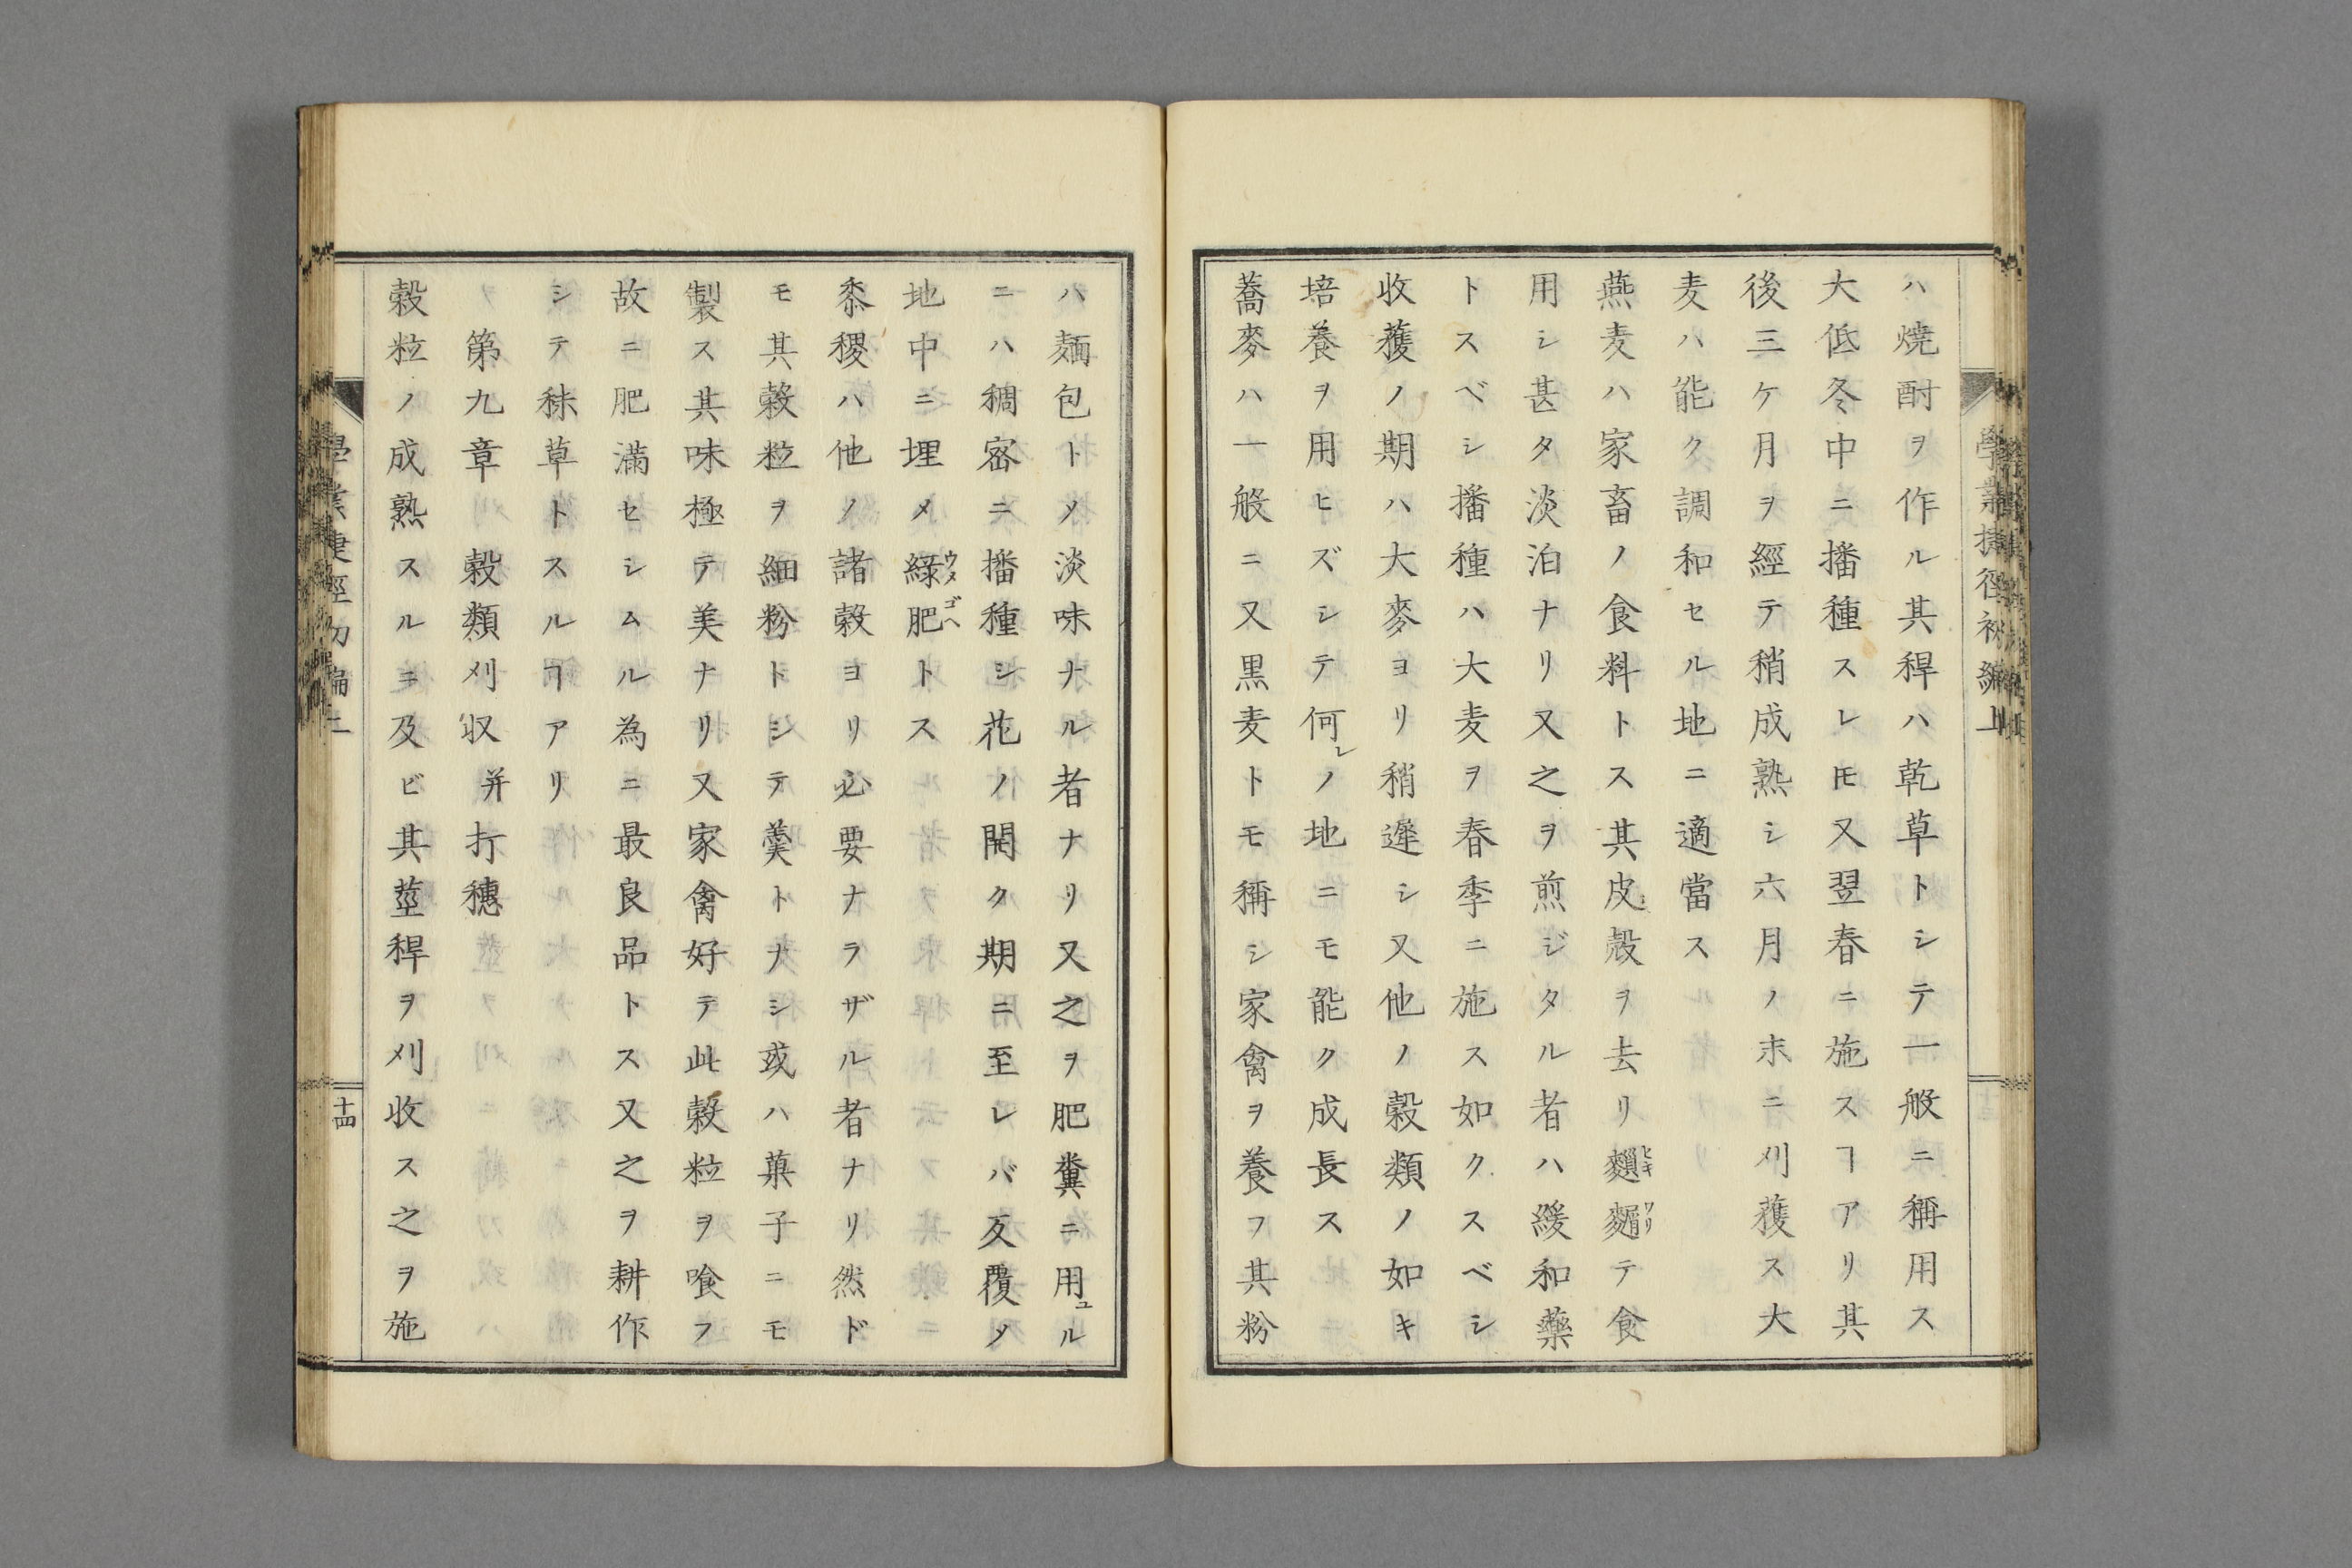 ハ燒酎ヲ作ル其稈ハ乾草トシテ一般ニ稱用ス
大低冬中ニ播種スレ𪜈又翌春ニ施スヿアリ其
後三ケ月ヲ經テ稍成熟シ六月ノ末ニ刈穫ス大
麦ハ能ク調和セル地ニ適當ス
燕麦ハ家畜ノ食料トス其皮殼ヲ去リ麺麬テ食
用シ甚タ淡泊ナリ又之ヲ煎ジタル者ハ緩和藥
トスベシ播種ハ大麦ヲ春季ニ施ス如クスベシ
收穫ノ期ハ大麥ヨリ稍遲シ又他ノ穀類ノ如キ
培養ヲ用ヒズシテ何レノ地ニモ能ク成長ス
蕎麥ハ一般ニ又黒麦トモ稱シ家禽ヲ養フ其粉
學業捷徑初編上
ハ麺包トメ淡味ナル者ナリ又之ヲ肥糞ニ用ユル
ニハ稠密ニ播種シ花ノ開ク期ニ至レバ反覆メ
地中ニ埋メ綠肥トス
ウメゴヘ
黍稷ハ他ノ諸穀ヨリ必要ナラザル者ナリ然ド
モ其穀粒ヲ細粉トシテ羹トナシ或ハ菓子ニモ
製ス其味極テ美ナリ又家禽好テ此穀粒ヲ喰フ
故ニ肥滿セシムル為ニ最良品トス又之ヲ耕作
シテ秣草トスルヿアリ
第九章　穀類刈収并打穗
穀粒ノ成熟スルニ及ビ其莖稈ヲ刈收ス之ヲ施
十四